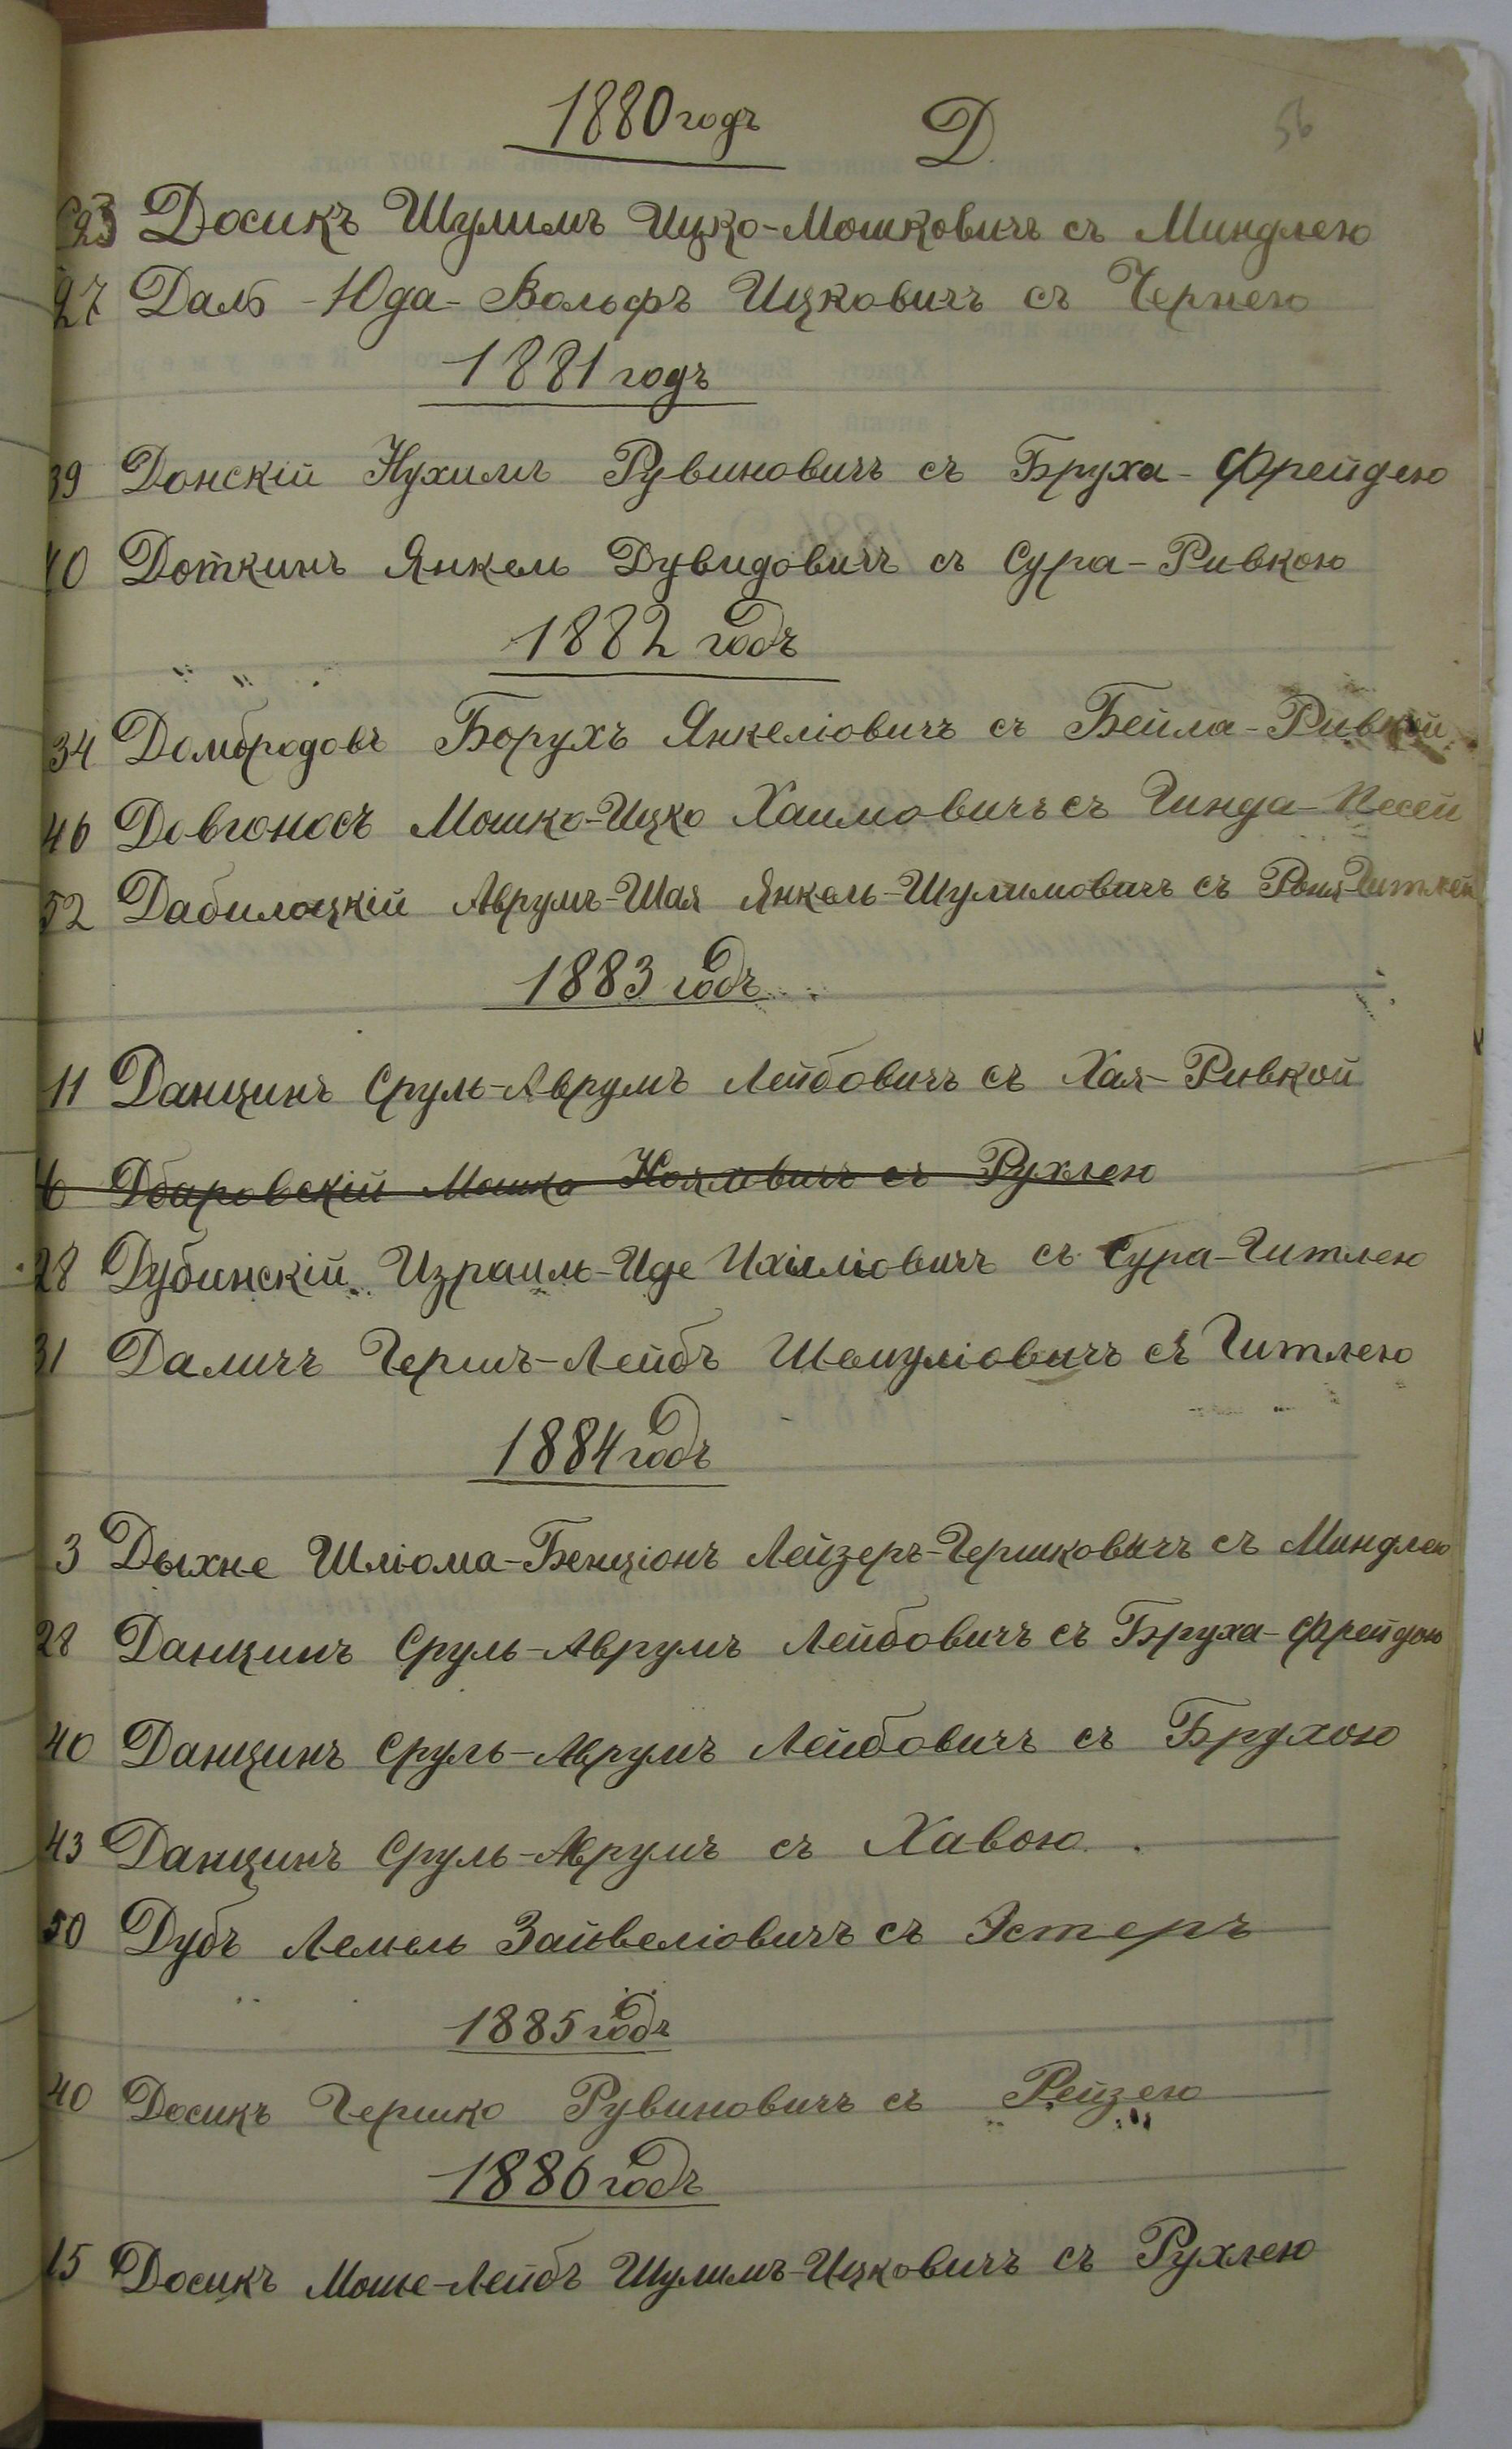 1880 годъ Д. 56
23 Досикъ Шулимъ Ицко-Мошковичъ съ Миндлею
27 Даль - Юда - Вольфъ Ицковичъ съ Чернею
1881 годъ
39 Донскій Нухимъ Рувиновичъ съ Бруха-Фрейдею
40 Доткинъ Янкель Дувидовичъ съ Сура-Ривкою
1882 годъ
34 Домбродовъ Борухъ Янкеліовичъ съ Бейла-Ривкой
46 Довгоносъ Мошко-Ицко Хаимовичъ съ Гинда-Песей
52 Дабилоцкій Аврумъ-Шая Янкель-Шулимовичъ съ
1883 годъ
11 Данцинъ Сруль-Аврумъ Лейбовичъ съ Хая-Ривкой
6 Дбаровскій Мошко съ Рухлею
28 Дубинскій Израиль-Иде Ихіиліовичъ съ Сура-Гитлею
31 Даличъ Гершъ-Лейбъ Шемуліовичъ съ Гитлею
1884 годъ
3 Дыхне Шліома-Бенціонъ Лейзеръ-Гершковичъ съ Миндлею
28 Данцинъ Сруль-Аврумъ Лейбовичъ съ Бруха-Фрейдою
40 Данцинъ Сруль-Аврумъ Лейбовичъ съ Брухою
43 Данцинъ Сруль-Аврумъ съ Хавою
50 Дубъ Лемель Зайвеліовичъ съ Эстеръ
1885 годъ
40 Досикъ Гершко Рувиновичъ съ Рейзею
1886 годъ
15 Досикъ Моше-Лейбъ Шулимъ-Ицковичъ съ Рухлею